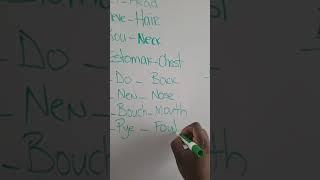 Head
Hair
Neck
Estomak-Chest
- Do - Back
- Nen - Nose
- Bouch-Mouth
- Pye - Foot
-Bouch